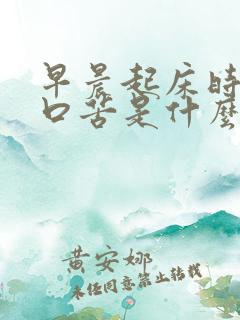 早晨起床時
口苦是什麼
黃安娜
未经同意禁止转载